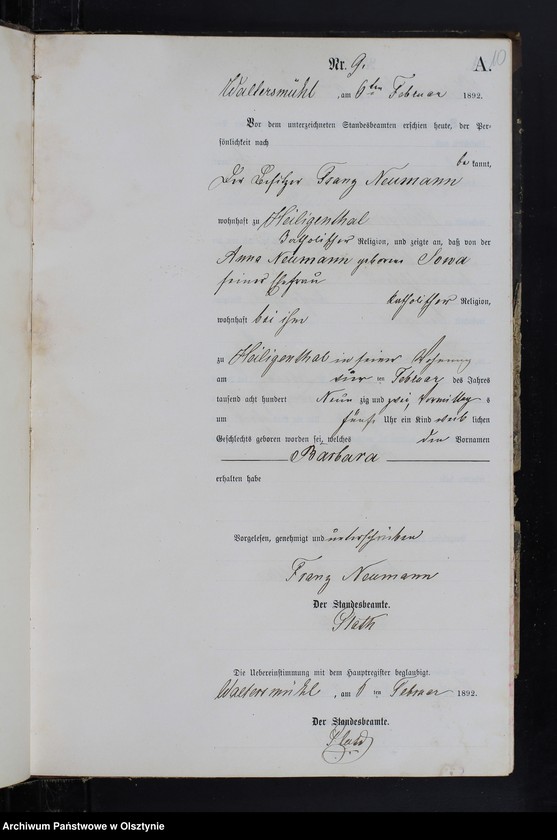 Nr. 9.
A.
10
Waltersmühl, am 6ten Februar 1892.
Vor dem unterzeichneten Standesbeamten erschien heute, der Per-
sönlichkeit nach
be kannt,
Der Besitzer Franz Neumann
wohnhaft zu Heiligenthal
katholischer Religion, und zeigte an, daß von der
Anna Neumann geborene Sowa
seiner Ehefrau
katholischer Religion,
wohnhaft bei ihm
zu Heiligenthal in seiner Wohnung
am ten Februar des Jahres
tausend acht hundert Neun zig und zwei, Vormittag s
um fünf Uhr ein Kind weib lichen
Geschlechts geboren worden sei, welches den Vornamen
Barbara
erhalten habe
Vorgelesen, genehmigt und unterschrieben
Franz Neumann
Der Standesbeamte.
Die Uebereinstimmung mit dem Hauptregister beglaubigt.
Waltersmühl, am 6 ten Februar 1892.
Der Standesbeamte.
Archiwum Państwowe w Olsztynie